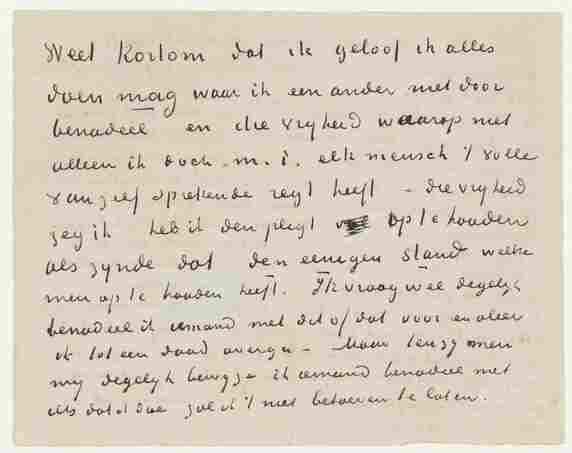 Weet Kortom dat ik geloof ik alles
doen mag waar ik een ander niet door
benadeel en die vryheid waarop niet
alleen ik doch m.i. elk mensch 't volle
van zelf sprekende regt heeft – die vryheid
zeg ik heb ik den pligt op te houden
als zynde dat den eenigen stand welke
men op te houden heeft. Ik vraag wel degelyk
benadeel ik iemand met dit of dat voor en aleer
ik tot een daad overga – Maar tenzy men
my degelyk bewyze ik iemand benadeel met
iets dat ik doe zal ik 't niet behoeven te laten.